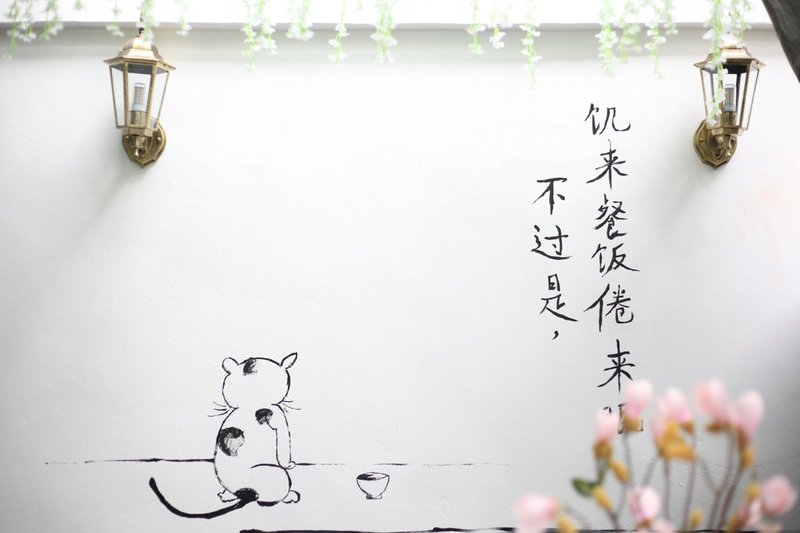 不过是，
饥来餐饭倦来